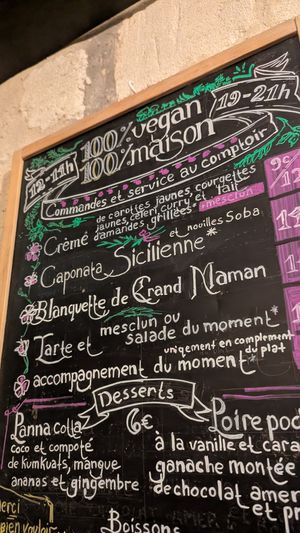 12-11h 100% vegan 19-21h
100% maison
Commandes et service au Comptoir
Crème de carottes jaunes, courgettes
jaunes, céleri, curry et lait
d'amandes grillées +mesclun
Caponata Sicilienne* et nouilles Soba
Blanquette de Grand Maman
Tarte et mesclun ou
salade du moment*
accompagnement du moment* uniquement en complément
du plat
Desserts
6€
Panna Cotta
Coco et compote
de kumkuats, mangue
ananas et gingembre
Poire poc
à la vanille et cara
ganache montée
de chocolat amer
et p
Merci
bien vouloir
Boissons
9€
12
1
1
1